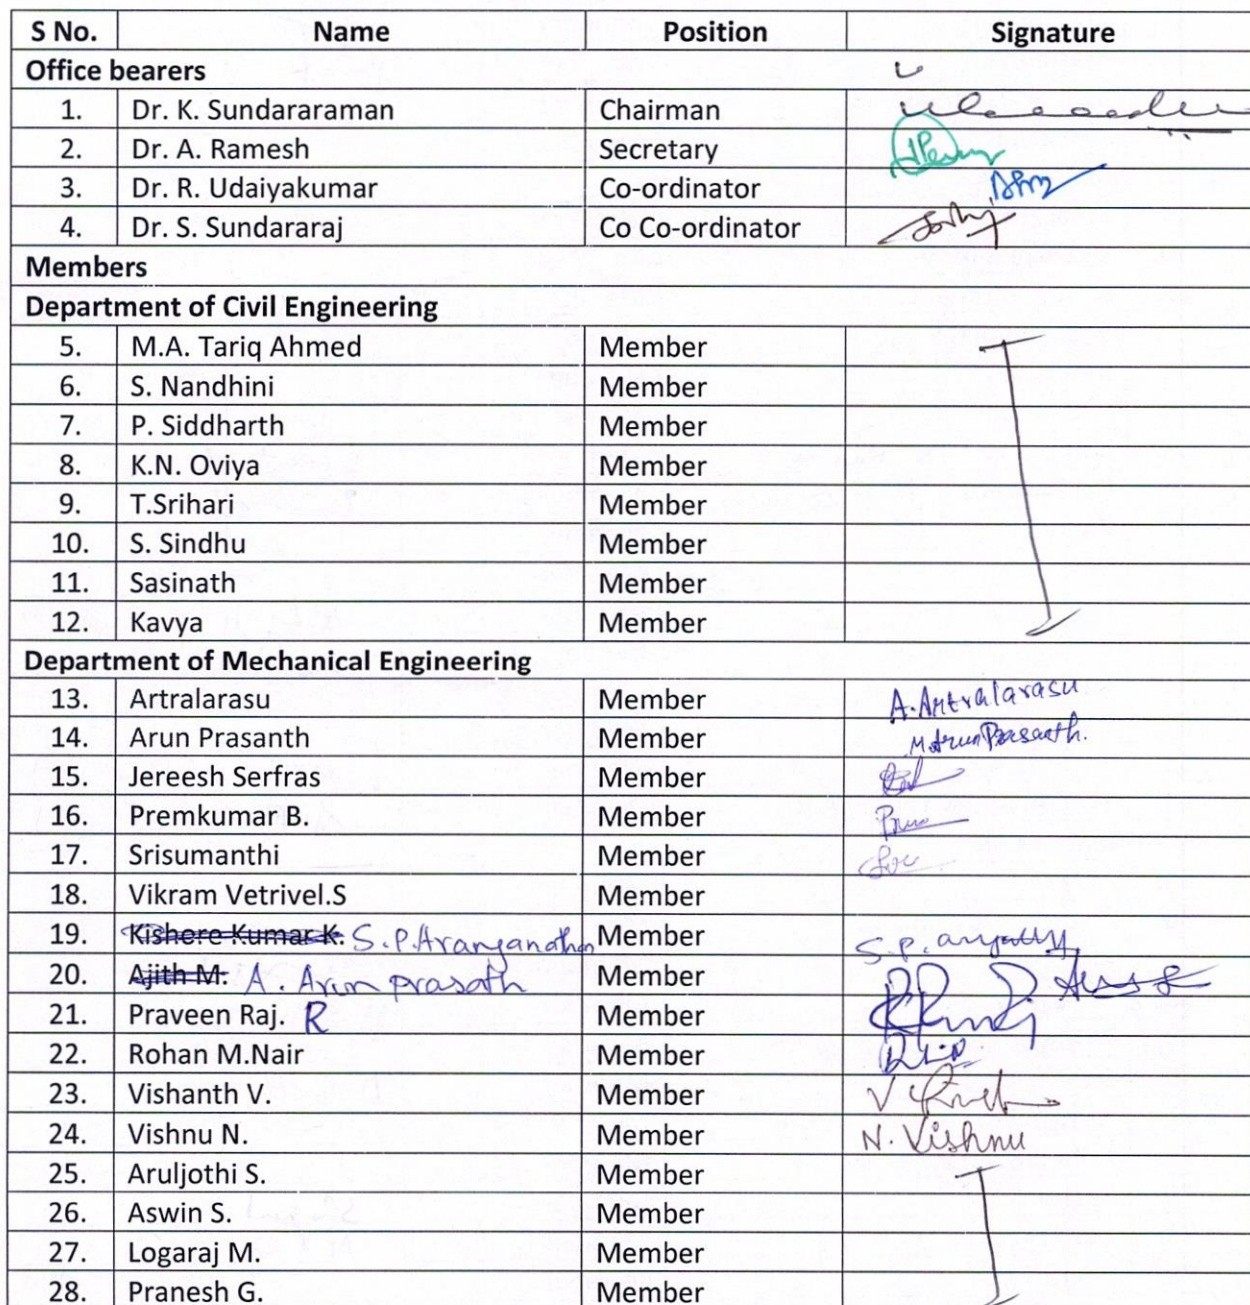 S No. Name Position Signature
Office bearers
1. Dr. K. Sundararaman Chairman
2. Dr. A. Ramesh Secretary
3. Dr. R. Udaiyakumar Co-ordinator
4. Dr. S. Sundararaj Co Co-ordinator
Members
Department of Civil Engineering
5. M.A. Tariq Ahmed Member
6. S. Nandhini Member
7. P. Siddharth Member
8. K.N. Oviya Member
9. T.Srihari Member
10. S. Sindhu Member
11. Sasinath Member
12. Kavya Member
Department of Mechanical Engineering
13. Artralarasu Member A.Artralarasu
14. Arun Prasanth Member M.Arun Prasanth.
15. Jereesh Serfras Member
16. Premkumar B. Member
17. Srisumanthi Member
18. Vikram Vetrivel.S Member
19. Kishore Kumar K. S.P.Aranganathan Member S.P.
20. Ajith M. A. Arun prasath Member
21. Praveen Raj. R Member
22. Rohan M.Nair Member
23. Vishanth V. Member
24. Vishnu N. Member N. Vishnu
25. Aruljothi S. Member
26. Aswin S. Member
27. Logaraj M. Member
28. Pranesh G. Member